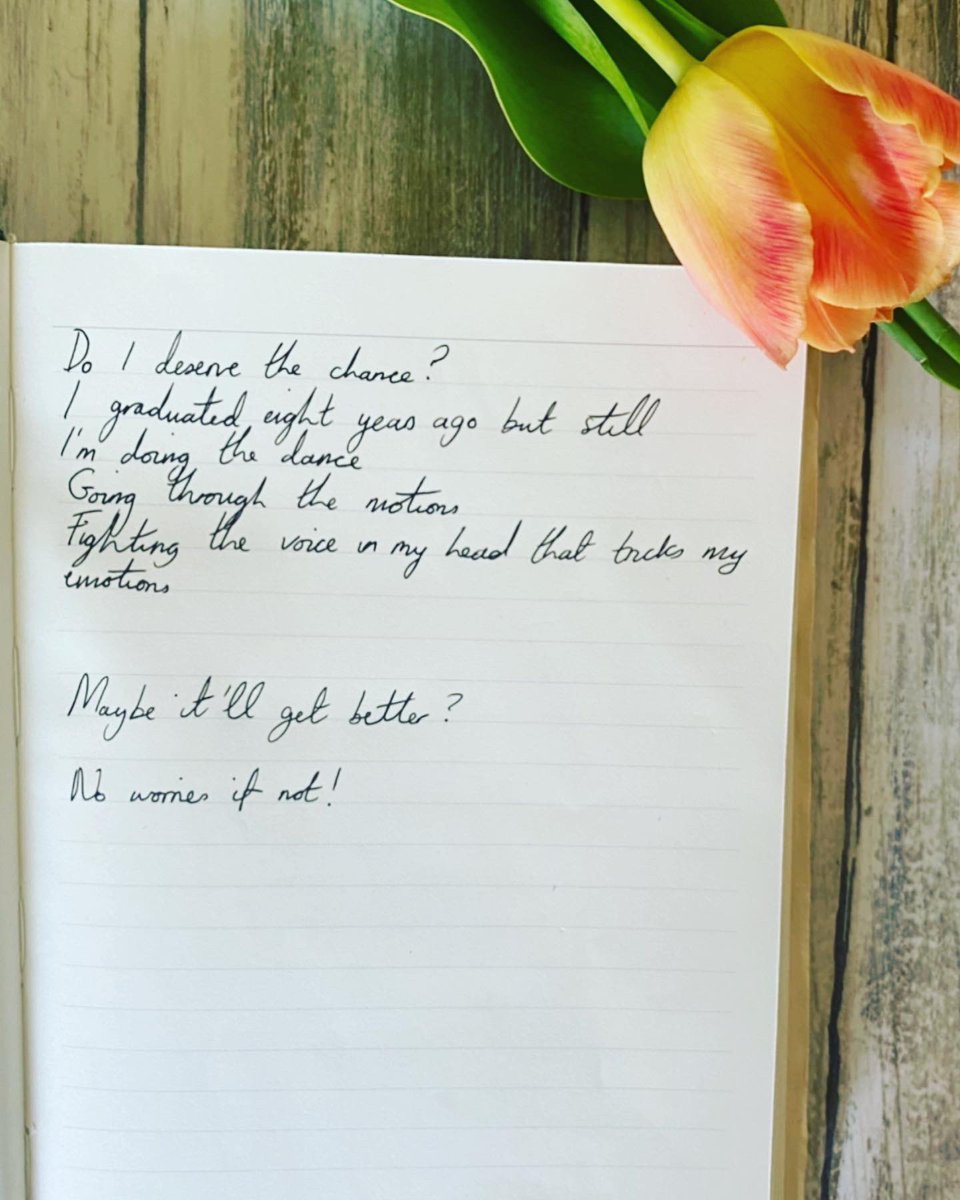 Do I deserve the chance?
I graduated eight years ago but still
I'm doing the dance
Going through the motions
Fighting the voice in my head that tricks my
emotions
Maybe it'll get better?
No worries if not!